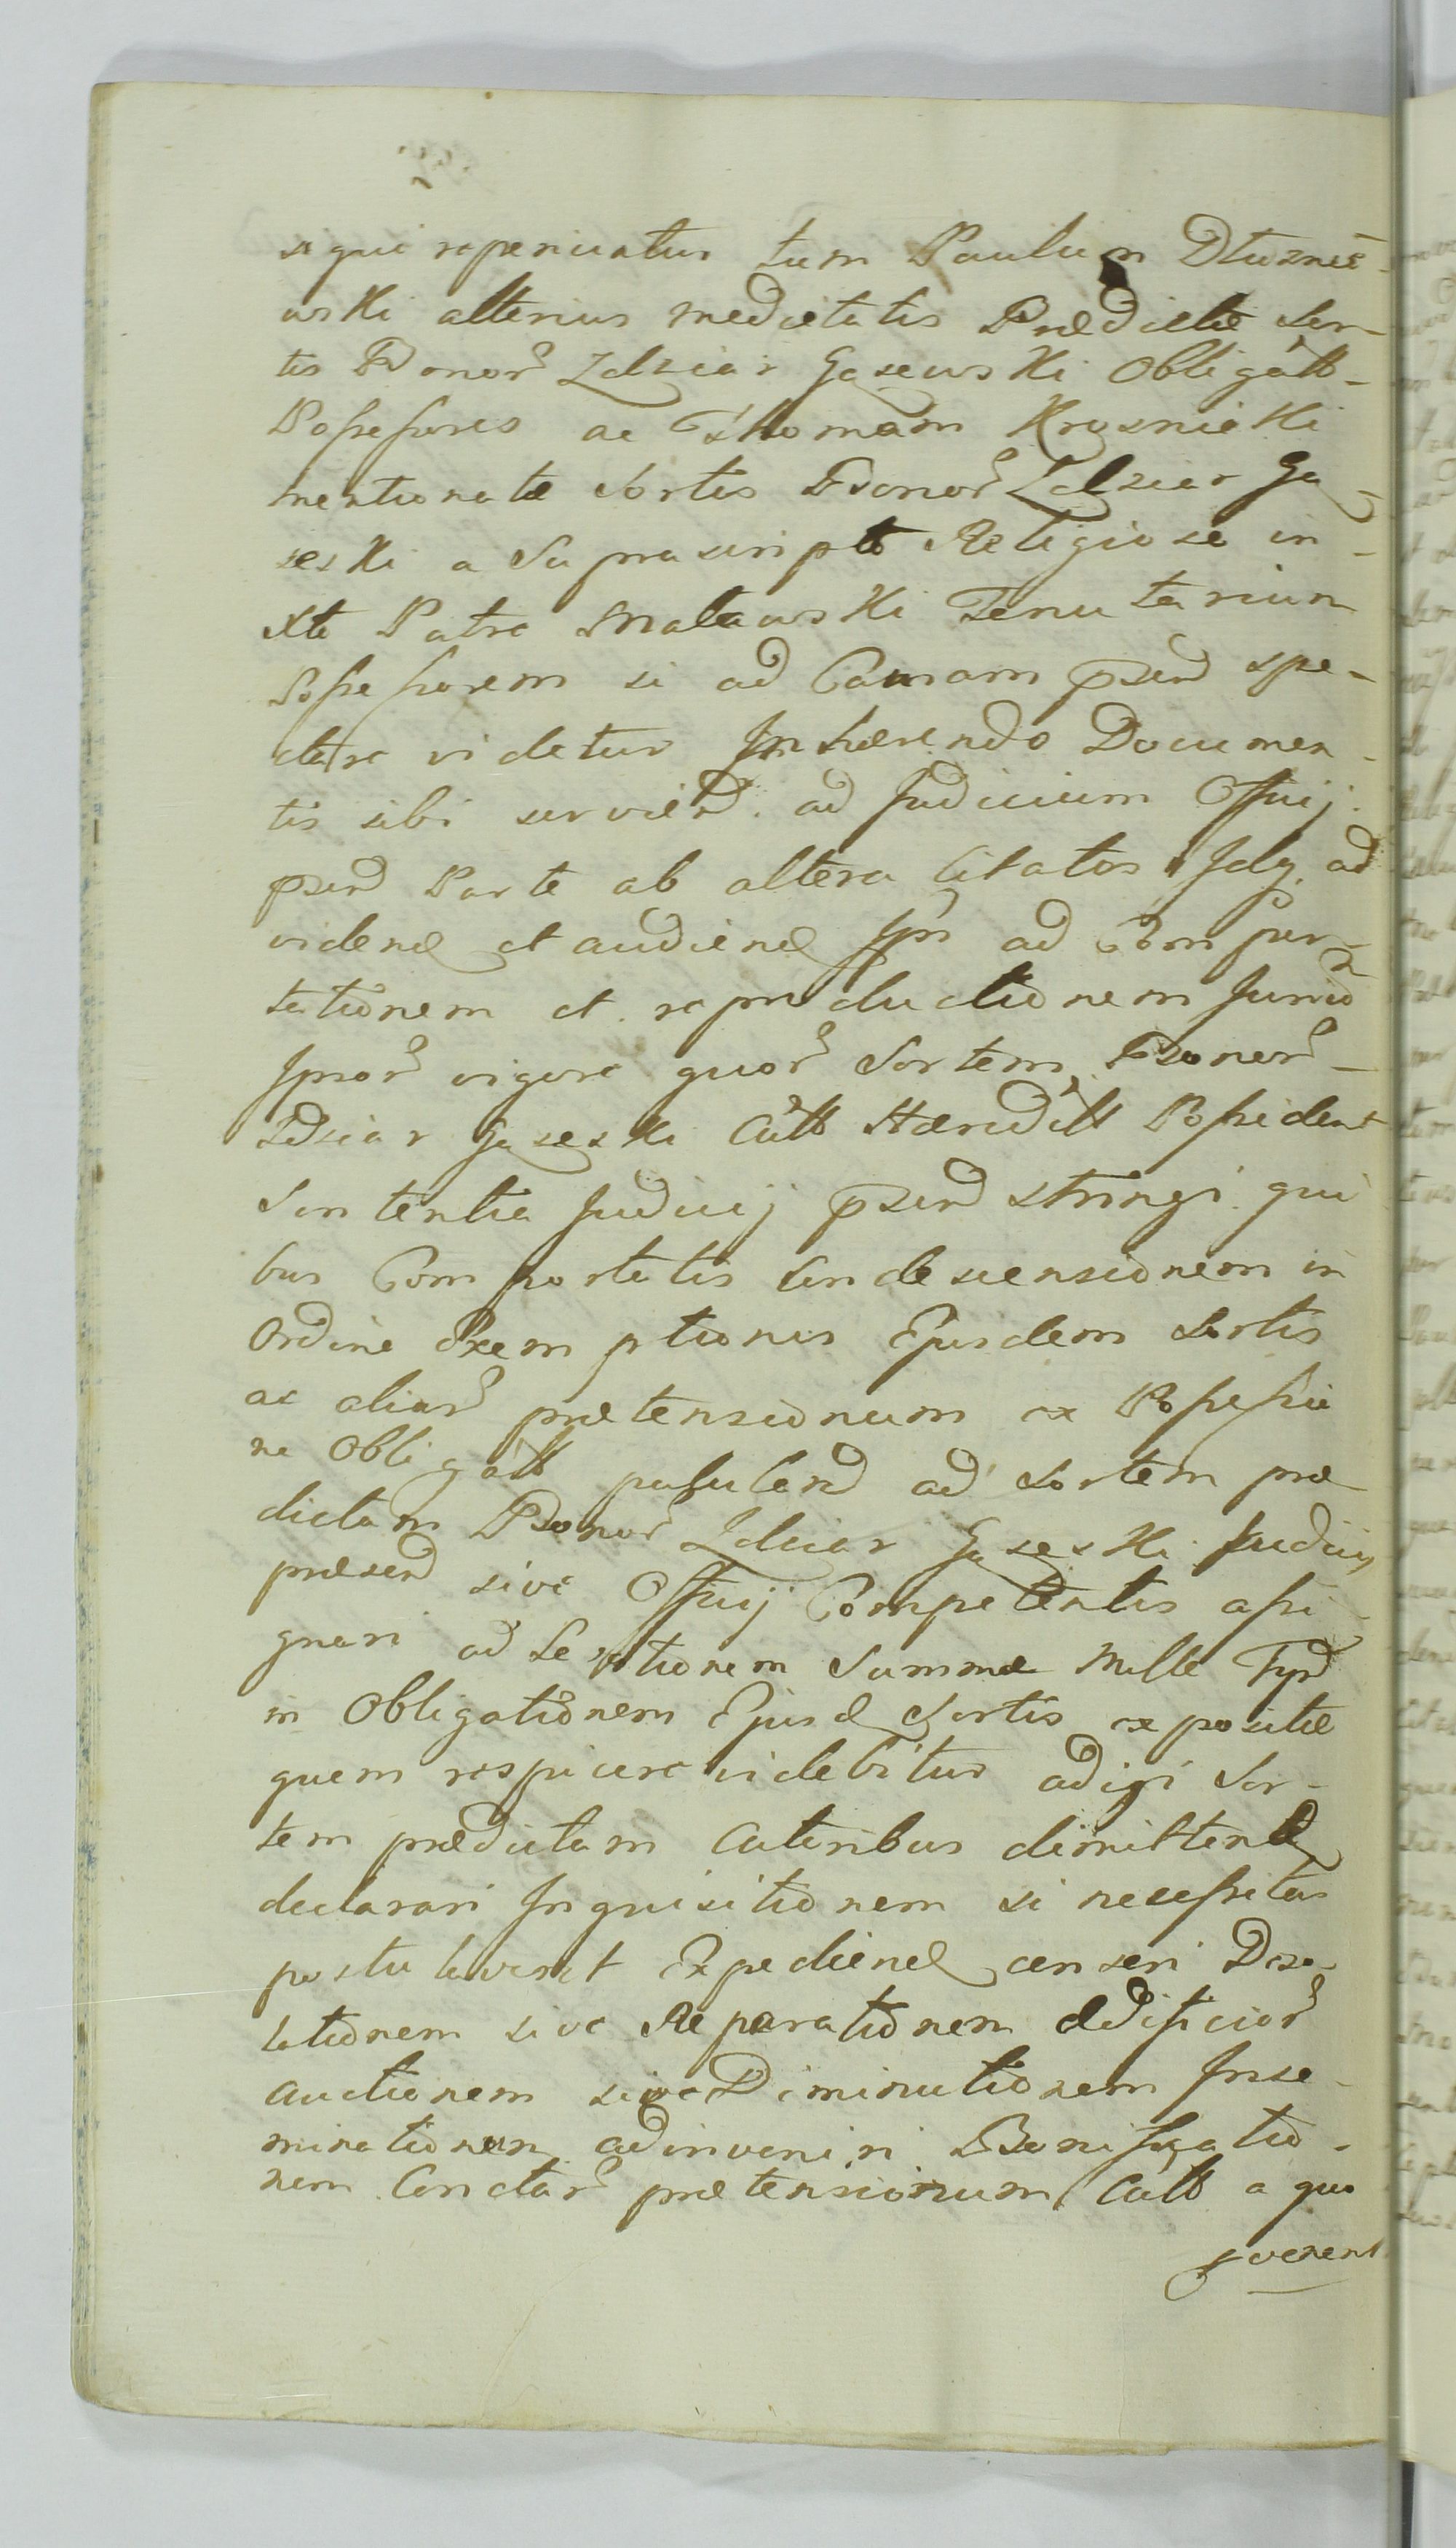 si qui reperiuntur tum Paulum Dłuznie-
wski alterius medietatis Prædictæ Sor-
tis Bonor Zdziar Gąsewski Obligatt-
Possessores ac Thomam Krusnicki
mentionatæ Sortis Bonor Zdziar Gą-
seski a Suprascripto Religioso in-
Xto Patre Malewski Tenutarium
Possessorem si ad Causam præsen spe-
ctare videtur Inhærendo Documen-
tis sibi serviend. ad Judicium Officij
præsen Parte ab altera Citatos Idq ad
vidend et audiend Ips ad Compor-
tationem et reproductionem Jurium
Ipsor vigore quor Sortem Bonor-
Zdziar Gąseski Citt Hæreditt Possident
Sententia Judicij præsen stringi qui
bus Comportatis Condescensionem in
Ordine Exemptionis Ejusdem Sortis
ac aliar prætensionum ex Possessio
ne Obligatt pululend ad Sortem præ
dictam Bonor Zdziar Gąseski Judicij
præsend sive Officij Competentis assi-
gnari ad Levationem Summæ Mille Tynf
in Obligationem Ejusd Sortis expositæ
quem respicere videbitur adigi Sor-
tem prædictam Actoribus dimittend
declarari Inquisitionem si necessitas
postulaverit Expediend censeri Deso-
lationem sive Reparationem Ædificior
auctionem sive Diminutionem Inse-
minationum adinveniri Bonificatio-
nem Cunctar prætensionum Citt a quo
provenent